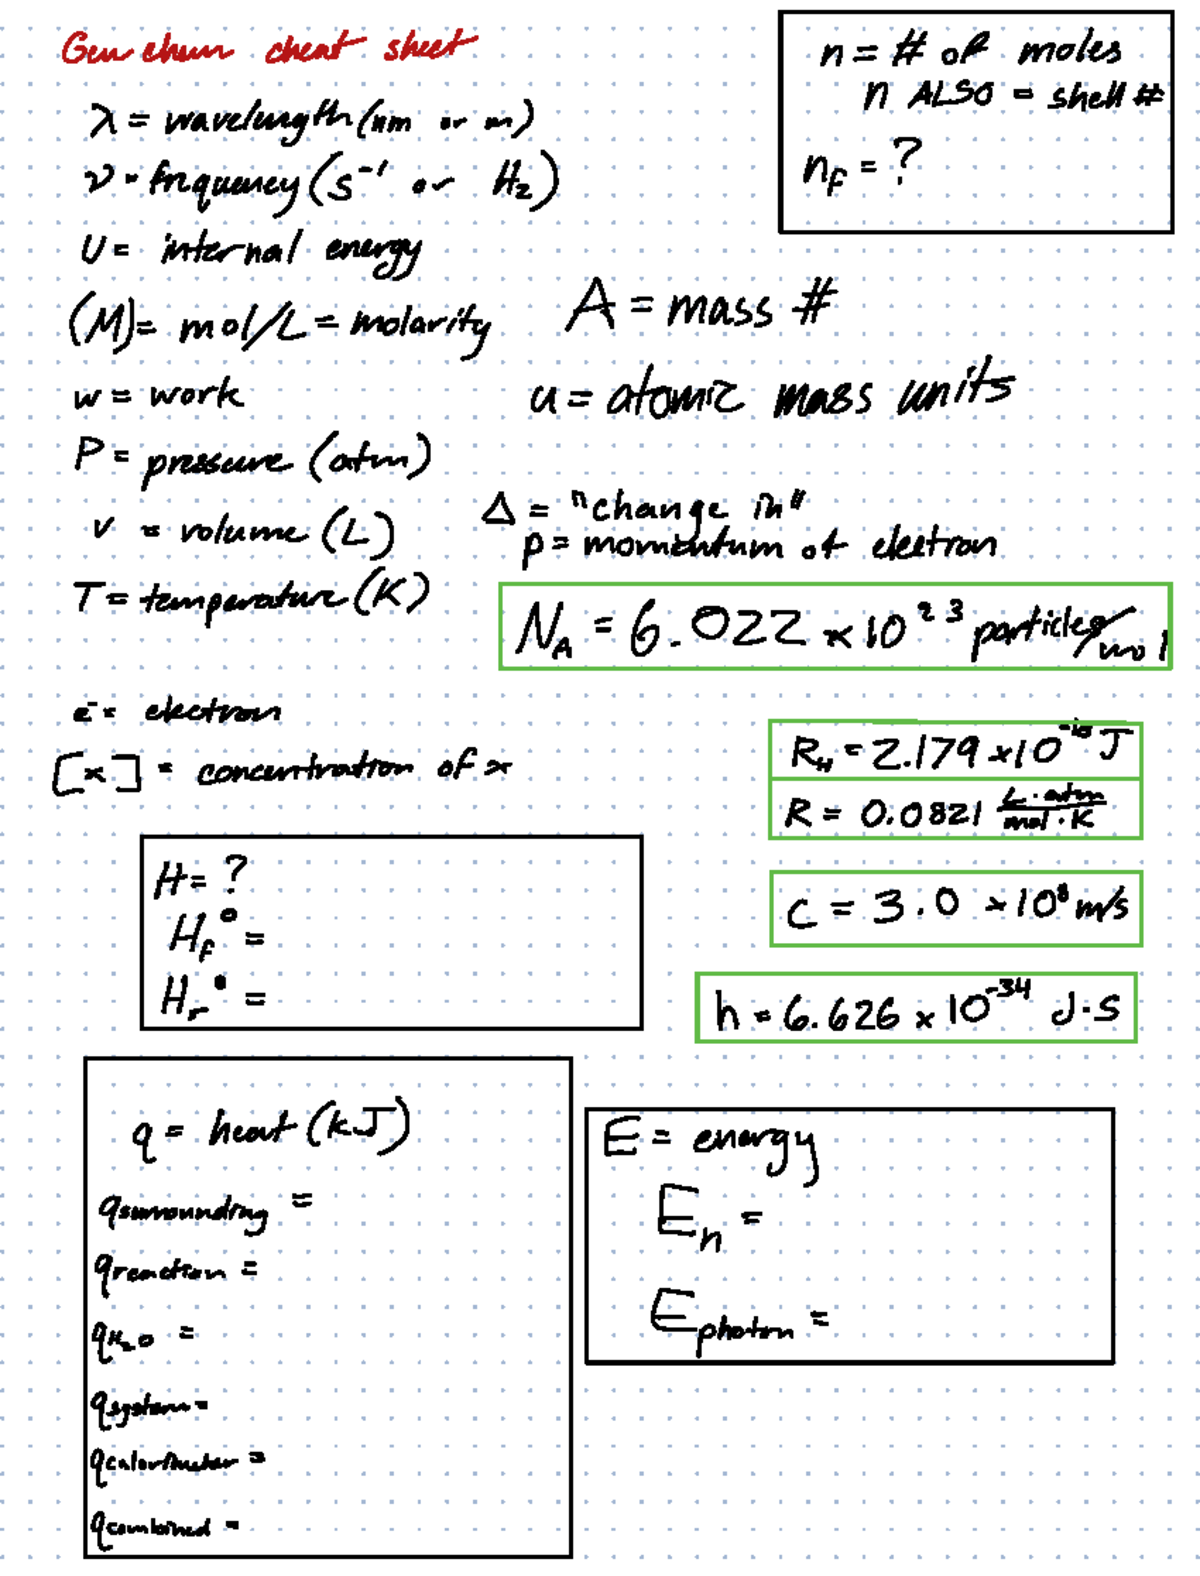 Gen chem cheat sheet
λ = wavelength (nm or m)
ν = frequency (s⁻¹ or Hz)
U = internal energy
(M) = mol/L = molarity
w = work
P = pressure (atm)
v = volume (L)
T = temperature (K)
e⁻ = electron
[x] = concentration of x
n = # of moles
n ALSO = shell #
n_f = ?
A = mass #
u = atomic mass units
Δ = "change in"
p = momentum of electron
N_A = 6.022 × 10²³ particles/mol
R_H = 2.179 × 10⁻¹⁸ J
R = 0.0821 L·atm/mol·K
C = 3.0 × 10⁸ m/s
h = 6.626 × 10⁻³⁴ J·S
H = ?
H_f° =
H_r° =
q = heat (kJ)
q_surrounding =
q_reaction =
q_H₂O =
q_system =
q_calorimeter =
q_combined =
E = energy
E_n =
E_photon =